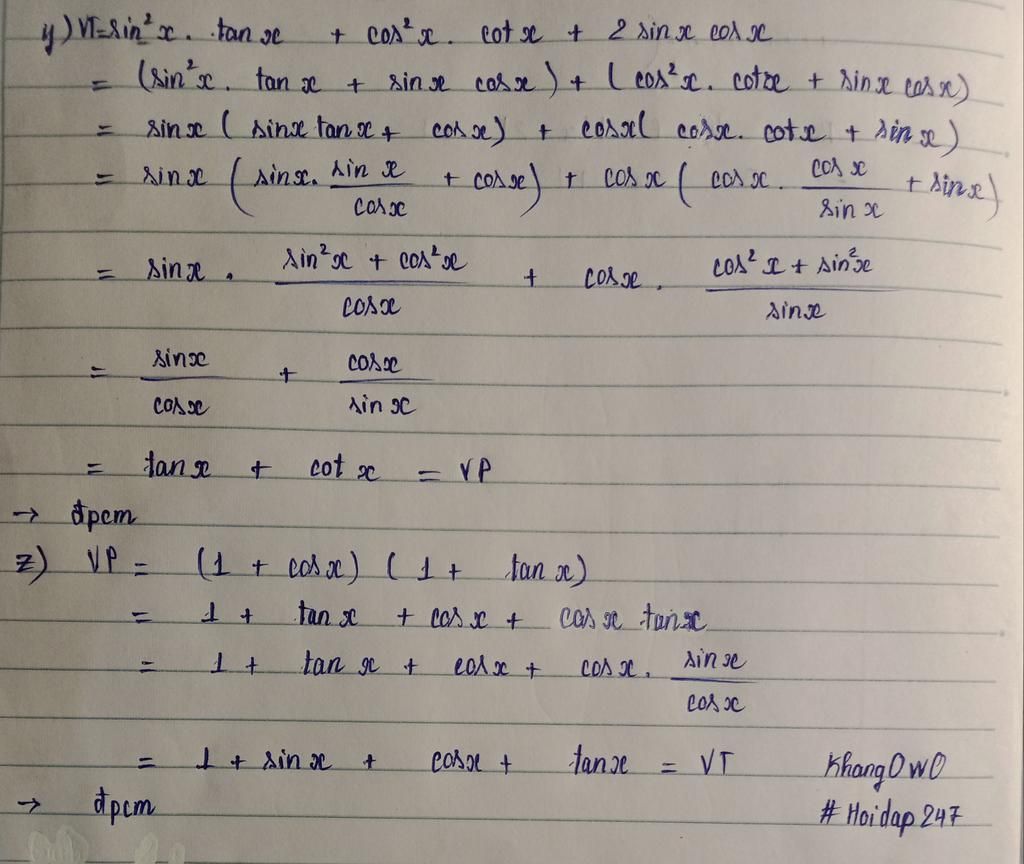 y) VT = sin²x . tan x + cos²x . cot x + 2 sin x cos x
= (sin²x . tan x + sin x cos x) + ( cos²x. cotx + sin x cos x)
= sinx ( sinx tan x + cos x) + cosx( cosx. cot x + sin x)
= sinx ( sinx. sin x / cosx + cosx) + cos x ( cos x . cos x / sin x + sinx)
= sinx . (sin²x + cos²x) / cosx + cosx . (cos² x + sin²x) / sinx
= sinx / cosx + cosx / sin x
= tanx + cot x = VP
→ đpcm
z) VP = (1 + cosx) ( 1 + tan x)
= 1 + tan x + cos x + cos x tanx
= 1 + tan x + cosx + cosx. sin x / cosx
= 1 + sinx + cosx + tanx = VT KhangOwO
→ đpcm # Hoidap 247